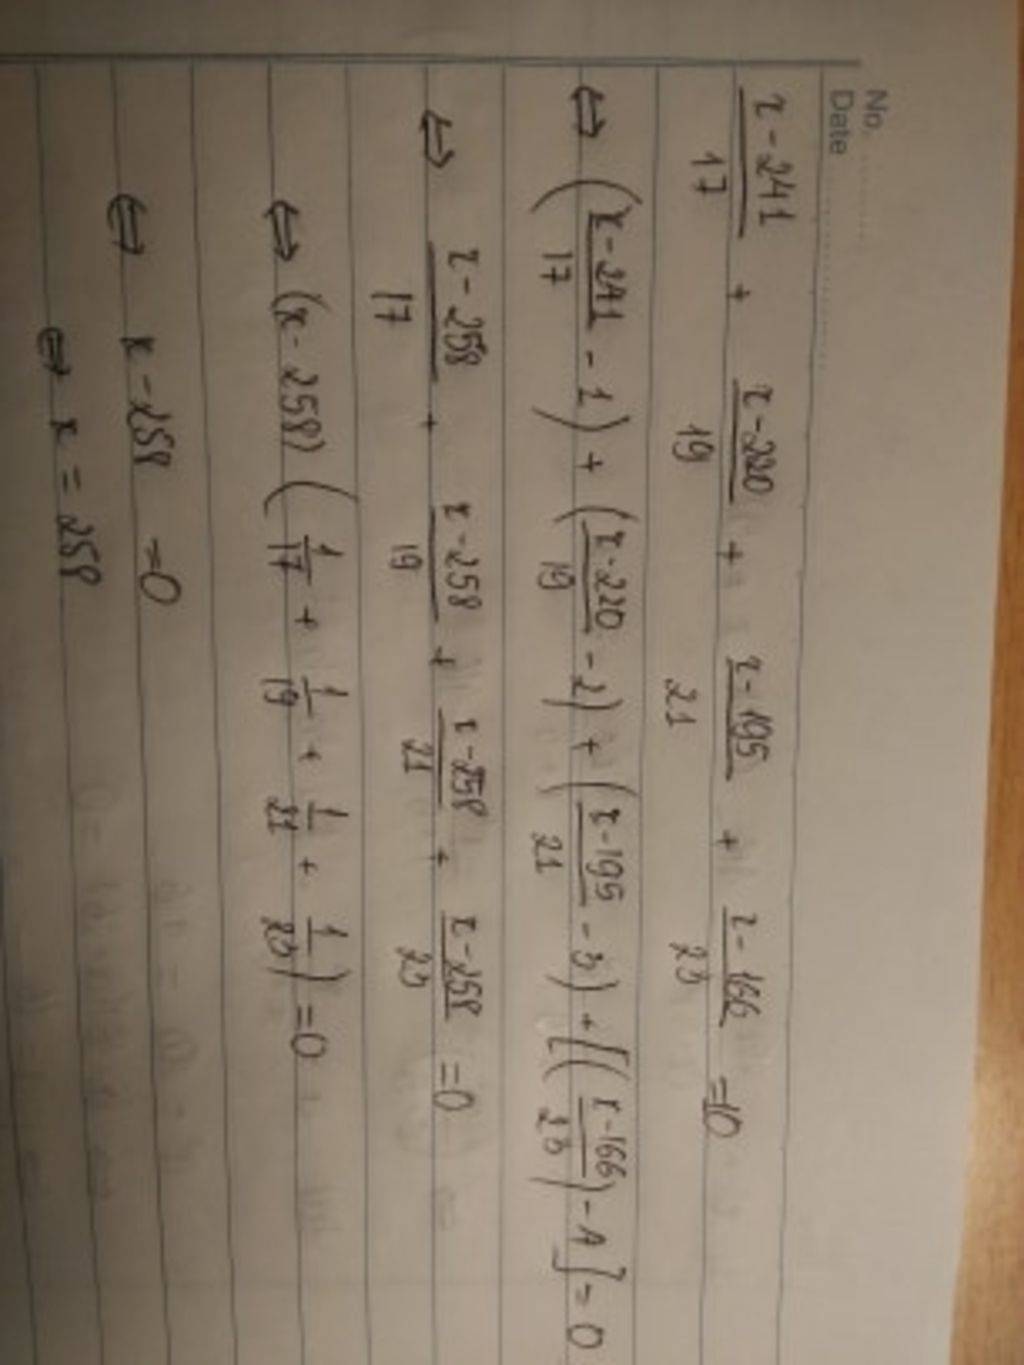 No.
Date
x - 241 / 17 + x - 220 / 19 + x - 195 / 21 + x - 166 / 23 = 10
⇔ (x - 241 / 17 - 1) + (x - 220 / 19 - 2) + (x - 195 / 21 - 3) + [(x - 166 / 23) - 4] = 0
⇔ x - 258 / 17 + x - 258 / 19 + x - 258 / 21 + x - 258 / 23 = 0
⇔ (x - 258) (1/17 + 1/19 + 1/21 + 1/23) = 0
⇔ x - 258 = 0
⇔ x = 258